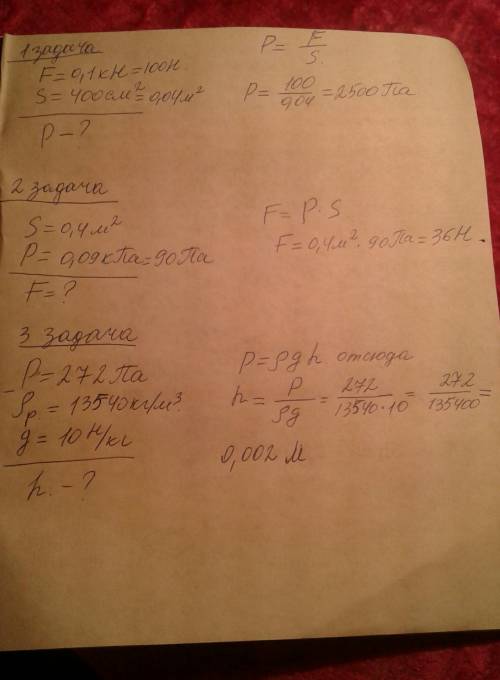 1 задача
F = 0,1 кН = 100 Н.
S = 400 см² = 0,04 м²
P - ?
P = F/S.
P = 100/0,04 = 2500 Па
2 задача
S = 0,4 м²
P = 0,09 кПа = 90 Па
F = ?
F = P · S
F = 0,4 м² · 90 Па = 36 Н.
3 задача
P = 272 Па
ρр = 13540 кг/м³.
g = 10 Н/кг
h. - ?
P = ρgh. отсюда
h = P/ρg = 272/13540·10 = 272/135400 =
0,002 м